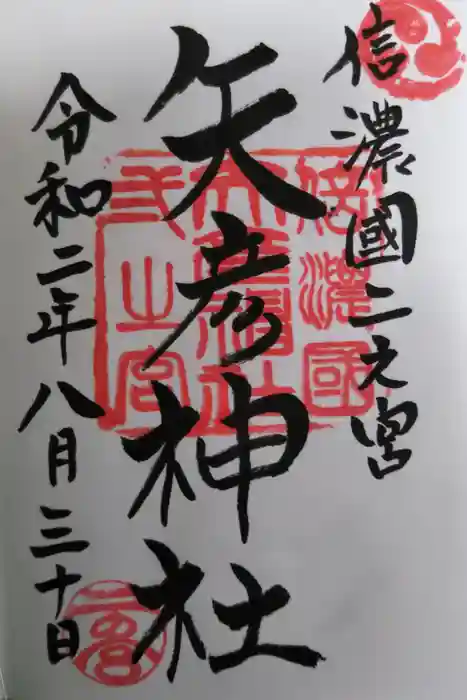 信濃國二之宮
矢彦神社
令和二年八月三十日
信濃國
矢彦神社
弐之宮